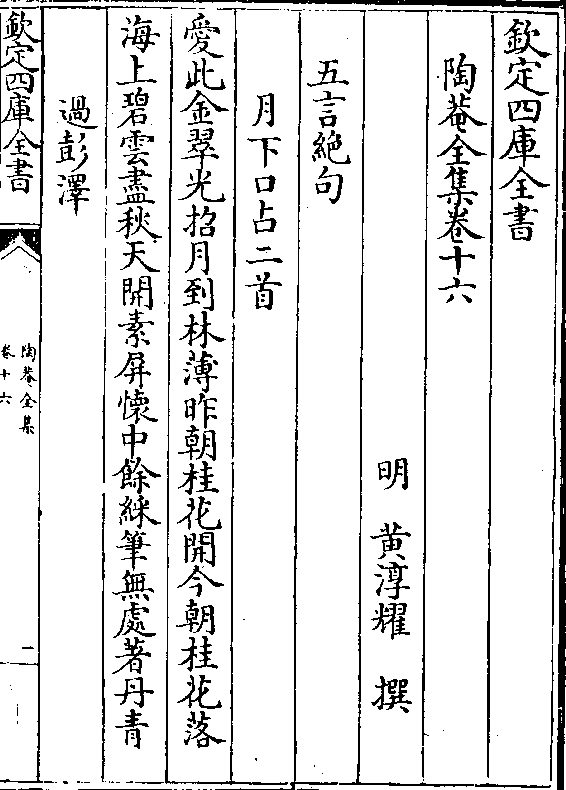 欽定四庫全書
陶菴全集卷十六
明　黃淳耀　撰
五言絶句
月下口占二首
愛此金翠光招月到林薄昨朝桂花開今朝桂花落
海上碧雲盡秋天開素屏懷中餘綵筆無處著丹青
過彭澤
欽定四庫全書
陶菴全集
卷十六
一